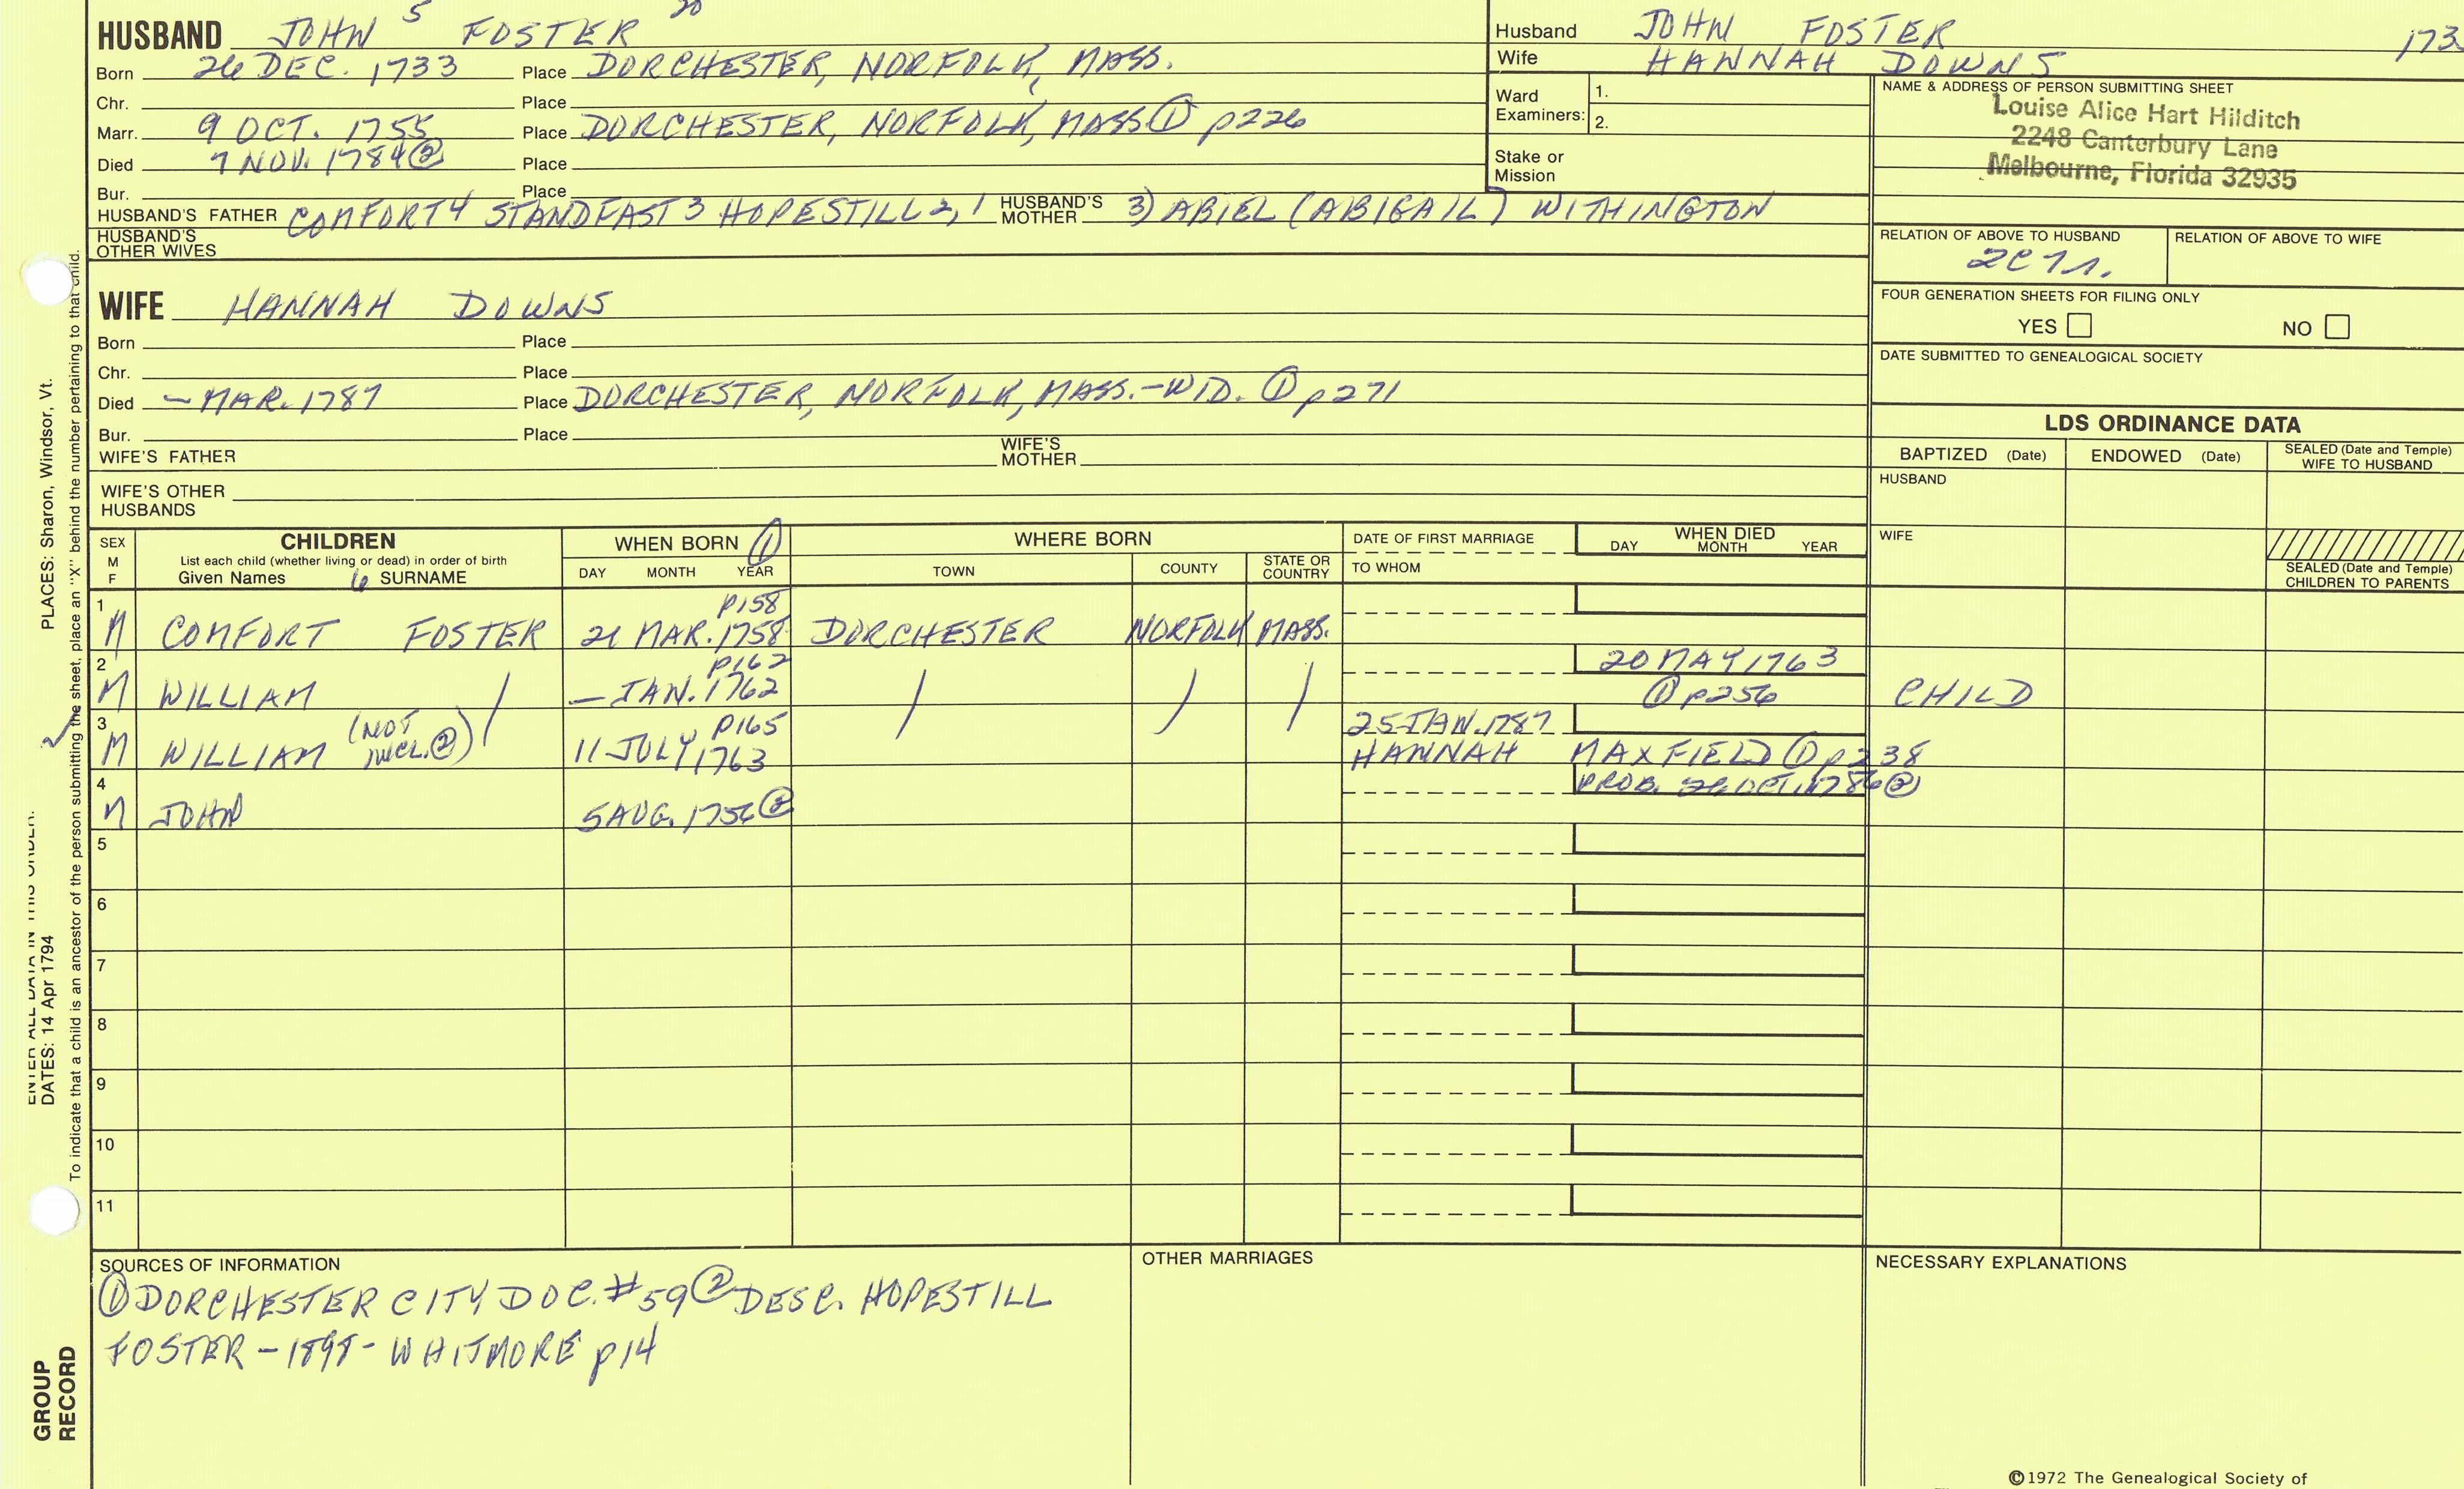 HUSBAND JOHN 5 FOSTER
Born 26 DEC. 1733 Place DORCHESTER, NORFOLK, MASS.
Chr. Place
Marr. 9 OCT. 1755 Place DORCHESTER, NORFOLK, MASS ① p226
Died 7 NOV. 1784 ② Place
Bur. Place
HUSBAND'S FATHER COMFORT 4 STANDFAST 3 HOPESTILL 2, 1 HUSBAND'S MOTHER 3) ABIEL (ABIGAIL) WITHINGTON
HUSBAND'S OTHER WIVES
Husband JOHN FOSTER 173
Wife HANNAH DOWNS
Ward Examiners: 1.
2.
Stake or Mission
NAME & ADDRESS OF PERSON SUBMITTING SHEET
Louise Alice Hart Hilditch
2248 Canterbury Lane
Melbourne, Florida 32935
RELATION OF ABOVE TO HUSBAND RELATION OF ABOVE TO WIFE
FOUR GENERATION SHEETS FOR FILING ONLY
YES NO
DATE SUBMITTED TO GENEALOGICAL SOCIETY
WIFE HANNAH DOWNS
Born Place
Chr. Place
Died – MAR. 1787 Place DORCHESTER, NORFOLK, MASS. – WID. ① p271
Bur. Place
WIFE'S FATHER WIFE'S MOTHER
WIFE'S OTHER HUSBANDS
LDS ORDINANCE DATA
BAPTIZED (Date) ENDOWED (Date) SEALED (Date and Temple) WIFE TO HUSBAND
HUSBAND
WIFE
SEALED (Date and Temple) CHILDREN TO PARENTS
SEX M F CHILDREN WHEN BORN ① WHERE BORN DATE OF FIRST MARRIAGE WHEN DIED
List each child (whether living or dead) in order of birth
Given Names 6 SURNAME DAY MONTH YEAR TOWN COUNTY STATE OR COUNTRY TO WHOM DAY MONTH YEAR
1 p158
M COMFORT FOSTER 21 MAR. 1758 DORCHESTER NORFOLK MASS.
2 p162 20 MAY 1763
M WILLIAM / – JAN. 1762 / / / ① p256 CHILD
3 (NOT INCL. ②) / p165 25 JAN. 1787
M WILLIAM 11 JULY 1763 HANNAH MAXFIELD ① p238
4 PROB. 26 OCT. 1786 ②
M JOHN 5 AUG. 1756 ②
5
6
7
8
9
10
11
SOURCES OF INFORMATION
① DORCHESTER CITY DOC. #59 ② DESC. HOPESTILL
FOSTER – 1898 – WHITMORE p14
OTHER MARRIAGES
NECESSARY EXPLANATIONS
©1972 The Genealogical Society of
PLACES: Sharon, Windsor, Vt.
ENTER ALL DATA IN THIS ORDER:
DATES: 14 Apr 1794
To indicate that a child is an ancestor of the person submitting the sheet, place an "X" behind the number pertaining to that child.
GROUP
RECORD